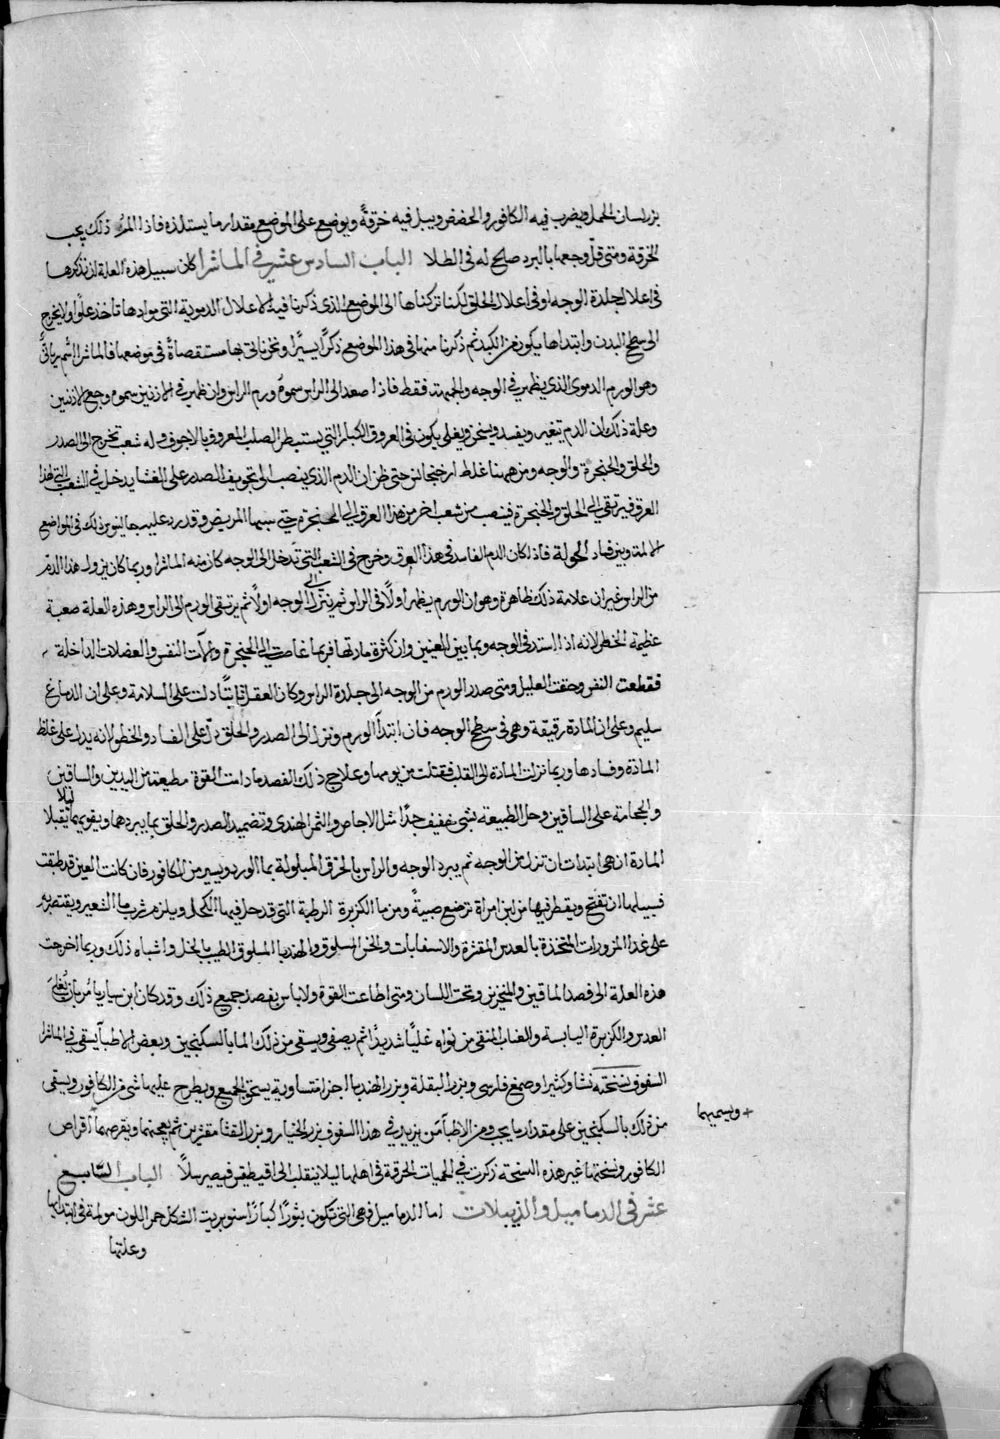 بزر لسان الحمل ويضرب فيه الكافور والحضض ويبل فيه خرقةً ويوضع على الموضع مقدار ما يستلذه فاذا المه ذلك يجب
الخرقة ومتى قلّ وجعها بالبرد صلح له فى الطلا الباب السادس عشر في الماشرا كان سبيل هذه العلة ان نذكرها
فى اعلال جلدة الوجه او فى اعلال الحلق لكنا تركناها الى الموضع الذى ذكرنا فيه الاعلال الدموية التى موادها تاخذ علوًا ولا يخرج
الى سطح البدن وابتداها يكون من الكبد ثم ذكرنا منها فى هذا الموضع ذكرًا يسيرًا ونحن ناتى بها مستقصاةً فى موضعها فالماشرا اسم سريانىّ
وهو الورم الدموى الذى يظهر في الوجه والجبهة فقط فاذا صعد الى الراس سموهُ ورم الراس وان ظهر في الاذنين سموه وجع الاذنين
وعلة ذلك ان الدم تغير ويفسد ويسخن ويغلى يكون فى العروق الكبار التي يستبطن الصلب المعروف بالاجوف وله شعب تخرج الى الصدر
والحلق والحنجرة والوجه ومن ههنا غلط ارخيجانس حتى ظن ان الدم الذى ينصب الى تجويف الصدر على الغشا يدخل في الشعب التي لهذا
العرق فيرتقي الى الحلق والحنجرة فينصب من شعب اخر من هذا العرق الى الحنجرة حتى سيما المريض وقد رد عليه جالينوس ذلك فى المواضع
الالمة وبين فساد الحولة فاذا كان الدم الفاسد فى هذا العرق وخرج فى الشعب التي تدخل الى الوجه كان منه الماشرا وربما كان نزوله هذا الدم
من الراس غير ان علامة ذلك ظاهرة وهو ان الورم يظهر اولًا فى الراس ثم ينزل الى الوجه اولًا ثم يرتقى الورم الى الراس وهذه العلة صعبة
عظيمة الخطر لانه اذا استد فى الوجه وبما بين العينين وان كثرة مادتها فربما غاصت الى الحنجرة وملات النفس والعضلات الداخلة
فقطعت النفس وخنقت العليل ومتى صدر الورم من الوجه الى جلدة الراس وكان العقل ثابتًا دلت على السلامة وعلى ان الدماغ
سليم وعلى ان المادة رقيقة وهى فى سطح الوجه فان ابتدا الورم ونزل الى الصدر والحلق دلّ على الفساد والخطر لانه يدل على غلظ
المادة وفسادها وربما نزلت المادة الى القلب فقتلت من يومها وعلاج ذلك الفصد ما دامت القوة مطيعة من اليدين والساقين
والحجامة على الساقين وحل الطبيعة بشى خفيف جدًا مثل الاجاص والتمر الهندى وتضميد الصدر والحلق بما يبردها ويقويهما ليلا يقبلا
المادة ان هى ابتدات ان تنزل من الوجه ثم يبرد الوجه والراس بالخرق المبلولة بما الورد ويسير من الكافور فان كانت العين قد طبقت
فسبيلها ان تفتح ويقطر فيها من لبن امراة ترضع صبيةً ومن ما الكزبرة الرطبة التى قد حل فيها الكحل ويلزم شرب ما الشعير ويقتصر به
على غذا المزورات المتخذة بالعدس المقشرة والاسفاناخات والخس المسلوق والهندبا المسلوق الطيب بالخل واشباه ذلك وربما اخرجت
هذه العلة الى فصد الماقين والمنخرين وتحت اللسان ومتى اطاعت القوة ولا باس بفصد جميع ذلك وقد كان ابن سيار يامُر بان يُغلَى
العدس والكزبرة اليابسة والعناب المنقى من نواه غليًا شديدًا ثم يصفى ويسقى من ذلك الما بالسكنجبين وبعض الاطبا يسقى في الماشرا
السفوف نسخته نشا وكثيرا وصمغ فارسى وبزر البقلة وبزر الهندبا اجزا متساوية يسحق الجميع ويطرح عليها شى من الكافور ويسقى
من ذلك بالسكنجبين على مقدار ما يجب ومن الاطبا من يزيد في هذا السفوف بزر الخيار وبزر القثا مقشرين ثم يعجنها ويقرصها + اقراص
+ ويسميها
الكافور ونسختها غير هذه النسخة ذكرت في الحميات الحرقة فى اهلها ليلا ينقلب الى قيطيقس فيصير سلاً الباب السابع
عشر فى الدماميل والدبيلات اما الدماميل فهى التى تكون بثورًا كبارًا صنوبرية الشكل حمر اللون مولمة فى ابتدايها
وعلتها